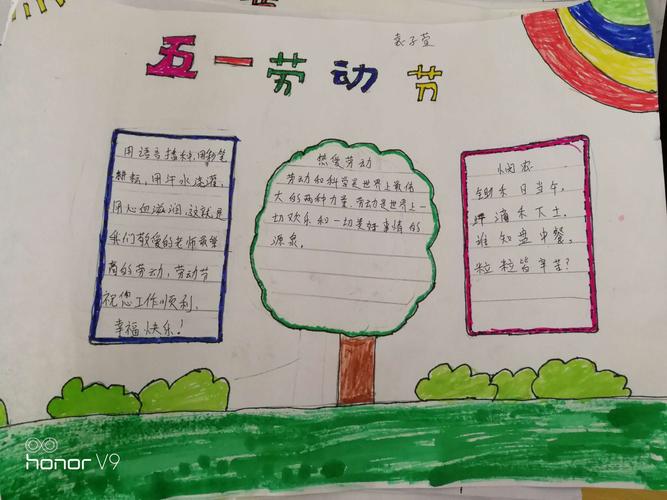 五一劳动节
袁子萱
用语言播种,用彩笔
耕耘,用汗水浇灌,
用心血滋润,这就是
我们敬爱的老师最崇
高的劳动,劳动节
祝您工作顺利,
幸福快乐!
热爱劳动
劳动和科学是世界上最伟
大的两种力量,劳动是世界上一
切欢乐和一切美好事情的
源泉。
悯农
锄禾日当午,
滴禾下土。
谁知盘中餐,
粒粒皆辛苦?
honor V9